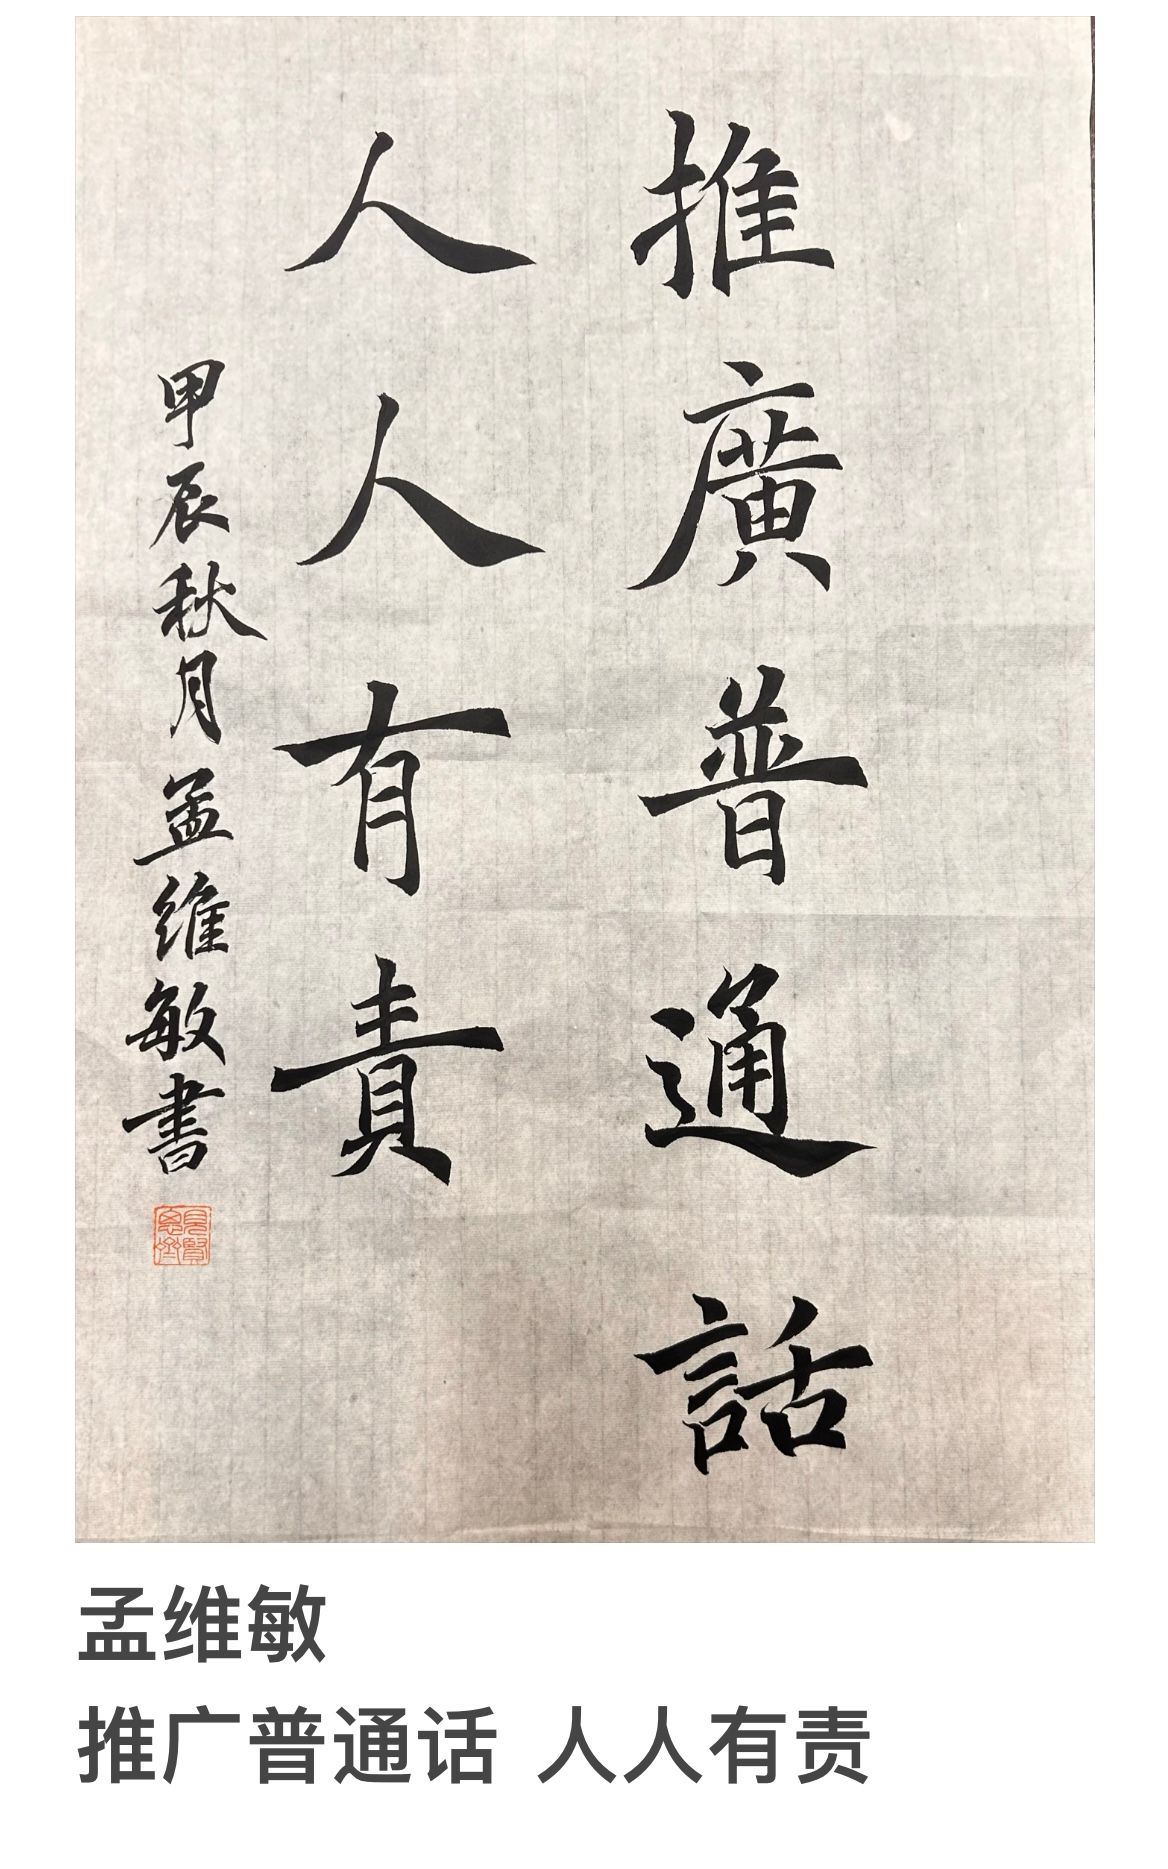 推廣普通話
人人有責
甲辰秋月孟维敏書
見賢思齊
孟维敏
推广普通话 人人有责